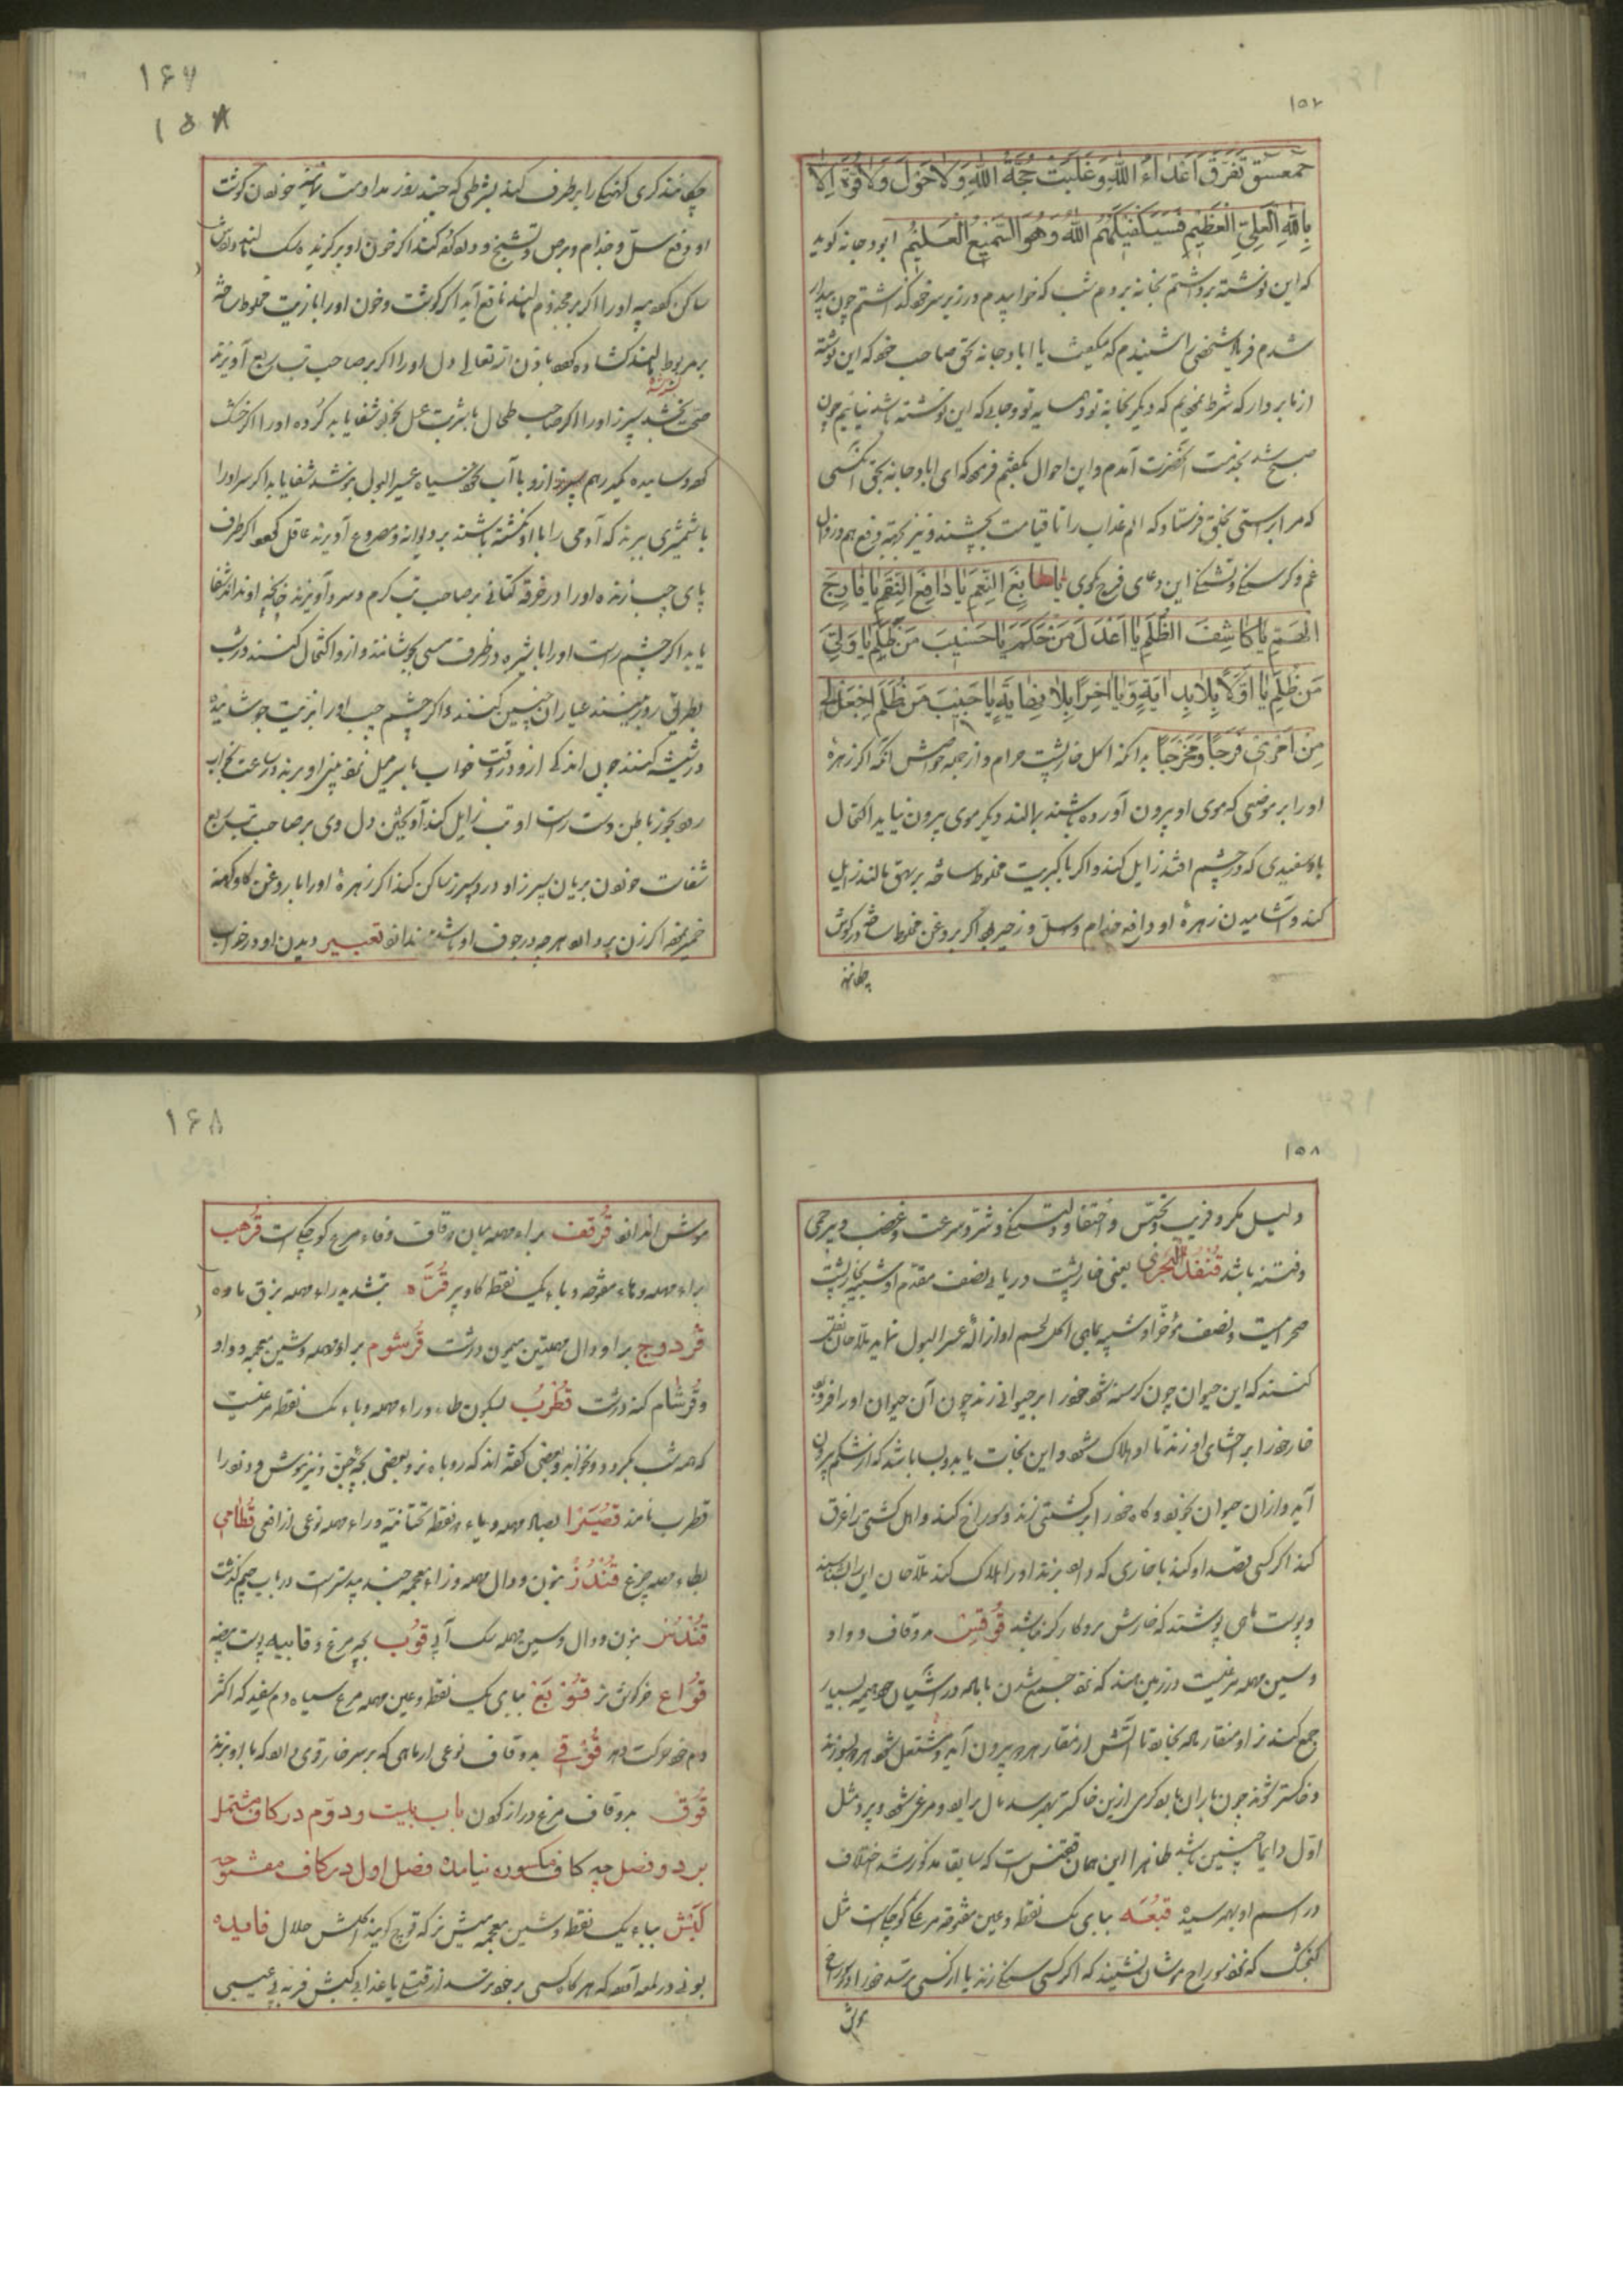 ۱۵۲
حمعسق تفرق اعداء الله وغلبت حجة الله ولا حول ولا قوة الا
بالله العلي العظيم فسيكفيكهم الله وهو السميع العليم ابودجانه كويد
كه اين نوشته برداشتم بخانه بردم شب كه خوابيدم در زير سر خود كذاشتم چون بيدار
شدم فرياد شخصی را شنيدم كه ميكفت يا ابا دجانه بحق صاحب خود كه اين نوشته
از ما بردار كه شرط نموديم كه ديكر بخانه تو و همسايه تو و جايی كه اين نوشته باشد نيائيم چون
صبح شد بخدمت آنحضرت آمدم و اين احوال بكفتم فرمود كه ای ابا دجانه بحق آنكسی
كه مرا براستی بخلق فرستاد كه الم عذاب را تا قيامت بچشند و نيز بجهته دفع هم و زوال
غم و كرسنكی و تشنكی اين دعای فرج بكوی يا سابغ النعم يا دافع النقم يا فارج
الغمم يا كاشف الظلم يا اعدل من حكم يا حسيب من ظلم يا ولي
من ظلم يا اولا بلا بداية ويا اخرا بلا نهاية يا حبيب من ظلم اجعل لي
من امري فرجا ومخرجا بدانكه اكل خارپشت حرام و از جمله خواصش آنكه اكر زهره
او را بر موضعی كه موی او بيرون آورده باشند بمالند ديكر موی بيرون نيايد اكتحال
باو سفيدی كه در چشم افتد زايل كند و اكر با كبريت مخلوط ساخته بر بهق مالند زايل
كند و آشاميدن زهره او دافع جذام و سل و زحير بود اكر بروغن مخلوط ساخته در كوش
چكانند
۱۶۷
۱۵۸
چكانند كری كهنكی را برطرف كند بشرطی كه چند روز مداومت نمايند خوردن كوشت
او دفع سل و جذام و برص و تشنج
ساكن كرد پيه او را اكر بر مجذوم مالند نافع آيد اكر كوشت و خون او را با زيت مخلوط ساخته
بر مربوط مالند كشاده كردد باذن الله تعالی دل او را اكر بر صاحب تب ربع آويزند
صحت بخشد سپرز او را اكر صاحب طحال با شربت عسل بخورد شفا يابد كرده او را اكر خشك
كرده و ساييده يكدرهم از او با آب نخود سياه عسر البول بنوشد شفا يابد اكر سر او را
با شمشيری ببرند كه آدمی را با او كشته باشند بر ديوانه و مصروع آويزند عاقل كردد اكر طرف
پای چپ زنده او را در خرقه كتانی بر صاحب تب كرم و سرد آويزند چنانچه او نداند شفا
يابد اكر چشم راست او را با شيره در ظرف مسی بجوشانند و از او اكتحال كنند در شب
بطريق روز بينند عياران چنين كنند و اكر چشم چپ او را بزيت جوشانيده
در شيشه كنند چون اندكی از او در وقت خواب با سر ميل به بينی او برند در ساعت بخواب
رود بخور ناخن دست راست او تب زايل كند آويختن دل وی بر صاحب تب ربع
شفاست خوردن بريان سپرز او درد سپرز ساكن كند اكر زهره او را با روغن كاو كهنه
خمير نموده اكر زن بردارد هر چه در جوف او باشد بيندازد تعبير ديدن او در خواب
۱۵۸
دليل مكر و فريب و تجسس و اختفا و دلتنكی و شر و سرعت و غضب و بيرحمی
و فتنه باشد قنفذ البحری يعنی خارپشت دريائی نصف مقدم او شبيه بخارپشت
صحرائيست و نصف مؤخر او شبيه بماهی اكل لحم او ازاله عسر البول نمايد ملاحان نقل
كنند كه اين حيوان چون كرسنه شود خود را بر حيوانی زند چون آن حيوان او را فرو برد
خار خود را بر احشای او زند تا او هلاك شود و اين نجات يابد و بسا باشد كه از شكم بيرون
آيد و از آن حيوان بخورد و كاه خود را بر كشتی زند و سوراخ كند و اهل كشتی را غرق
كند اكر كسی قصد او كند با خاری كه دارد بزند او را هلاك كند
و پوست ماهی پوشند كه خارش برو كاركر نباشد قوقيس بدو قاف و واو
و سين مهمله مرغيست در زمين هند كه نزد جمع شدن با ماده در آشيان خود هيمه بسيار
جمع كند نر او منقار ماده بخارد تا آتش از منقار هر دو بيرون آيد و مشتعل شود هر دو بسوزند
و خاكستر شوند چون باران ببارد كرمی از ين خاكستر بهم رسد بال برآرد و مرغی شود و پرد مثل
اول دايما چنين باشد ظاهرا اين همان ققنس است كه سابقا مذكور شد اختلاف
در اسم او بهم رسيده قبعه ببای يك نقطه و عين مفتوحه مرغكی كوچك است مثل
كنجشك كه نزد سوراخ موشان نشيند كه اكر كسی سنك زند يا از كسی بترسد خود را در سوراخ
موش
۱۶۸
موش اندازد قرقف براء مهمله ميان دو قاف و فاء مرغ كوچك است قرهب
براء مهمله و هاء مفتوحه و باء يك نقطه كاو پير قره بتشديد راء مهمله بزق ماده
قردوح براء و دال مهملتين ميمون درشت قرشوم براء مهمله و شين معجمه و واو
و قرشام كنه درشت قطرب بسكون طاء و راء مهمله و باء يك نقطه مرغيست
كه همه شب بگردد و نخوابد و بعضی كفته اند كه روباه نر و بعضی بچه جن و نيز موش و دزد را
قطرب نامند قصيرا بصاد مهمله و ياء دو نقطه تحتانيه و راء مهمله نوعی از افعی قطامي
بطاء مهمله چرغ قندز بنون و دال مهمله و زاء معجمه جند بيدستر است در باب جيم كذشت
قندس بنون و دال و سين مهمله سك آبی قوب بچه مرغ و قابيه پوست بيضه
قواع خركوش نر قوبع ببای يك نقطه و عين مهمله مرغ سياه دم سفيد كه اكثر
دم خود حركت دهد قوقي بدو قاف نوعی از ماهی كه بر سر خار قوی دارد كه باو بزند
قوق بدو قاف مرغ دراز كردن باب بيست و دوم در كاف مشتمل
بر دو فصل چه كاف مكسوره نيامده فصل اول در كاف مفتوحه
كبش بباء يك نقطه و شين معجمه ميش نر كه قوچ كويند اكلش حلال فايده
بونی در لمعه آورده كه هر كاه كسی بر خود ترسد از قتل يا عذابی كبش فربه بی عيبی